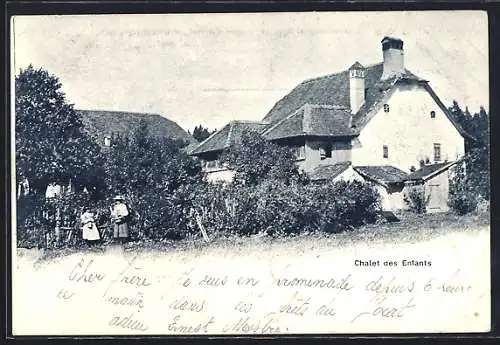 Chalet des Enfants
Cher frère. Je suis en promenade depuis 6 heure
du matin dans les près du Jorat
adieu Ernest